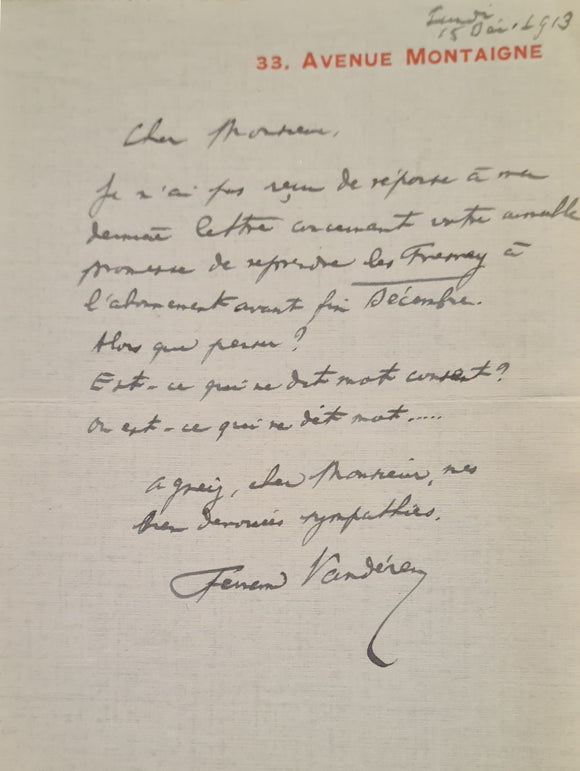 Lundi
15 Déc. 1913
33. AVENUE MONTAIGNE
Cher Monsieur,
Je n'ai pas reçu de réponse à ma
dernière lettre concernant votre aimable
promesse de reprendre les Fresnay à
l'abonnement avant fin Décembre.
Alors que penser ?
Est-ce qui ne dit mot consent ?
Ou est-ce qui ne dit mot.....
Agréez, cher Monsieur, mes
bien dévouées sympathies.
Fernand Vandérem